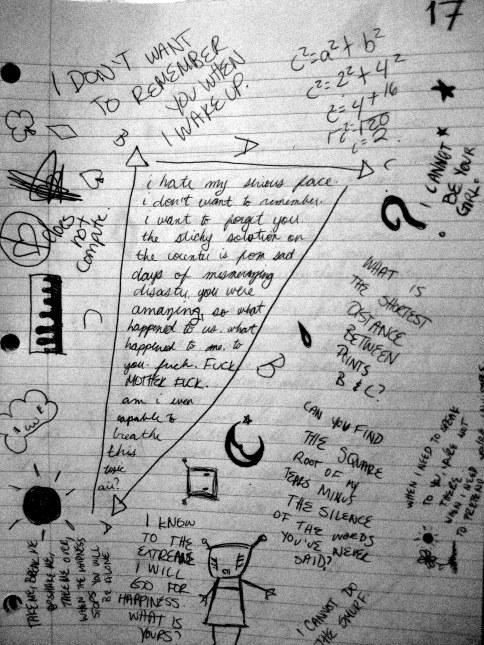 17
I DON'T WANT
TO REMEMBER
YOU WHEN
I WAKE UP.
c²=a²+b²
c²=2²+4²
c²=4+16
A
C
I CANNOT
BE YOUR
GIRL.
?
i hate my serious face.
i don't want to remember.
i want to forget you.
the sticky solution on
the counter is from sad
days of mesmerizing
disasty. you were
amazing, so what
happened to us. what
happened to me. to
you. fuck. FUCK.
MOTHER FUCK.
am i even
capable to
breathe
this
air?
does
not
compute.
B
WHAT IS
THE SHORTEST
DISTANCE
BETWEEN
POINTS
B & C?
CAN YOU FIND
THE SQUARE
ROOT OF MY
TEARS MINUS
THE SILENCE
OF THE WORDS
YOU'VE NEVER
SAID?
WHEN I NEED TO SPEAK
TO YOU YOU'RE NOT
THERE
WHEN I NEED
TO PRETEND
A
TAKE ME, BREAK ME
SHAKE ME,
TAKE ME OVER,
WHEN THE MADNESS
STOPS YOU WILL
BE ALONE.
I KNOW
TO THE
EXTREME
I WILL
GO FOR
HAPPINESS.
WHAT IS
YOURS?
I CANNOT DO
THE SMURF.